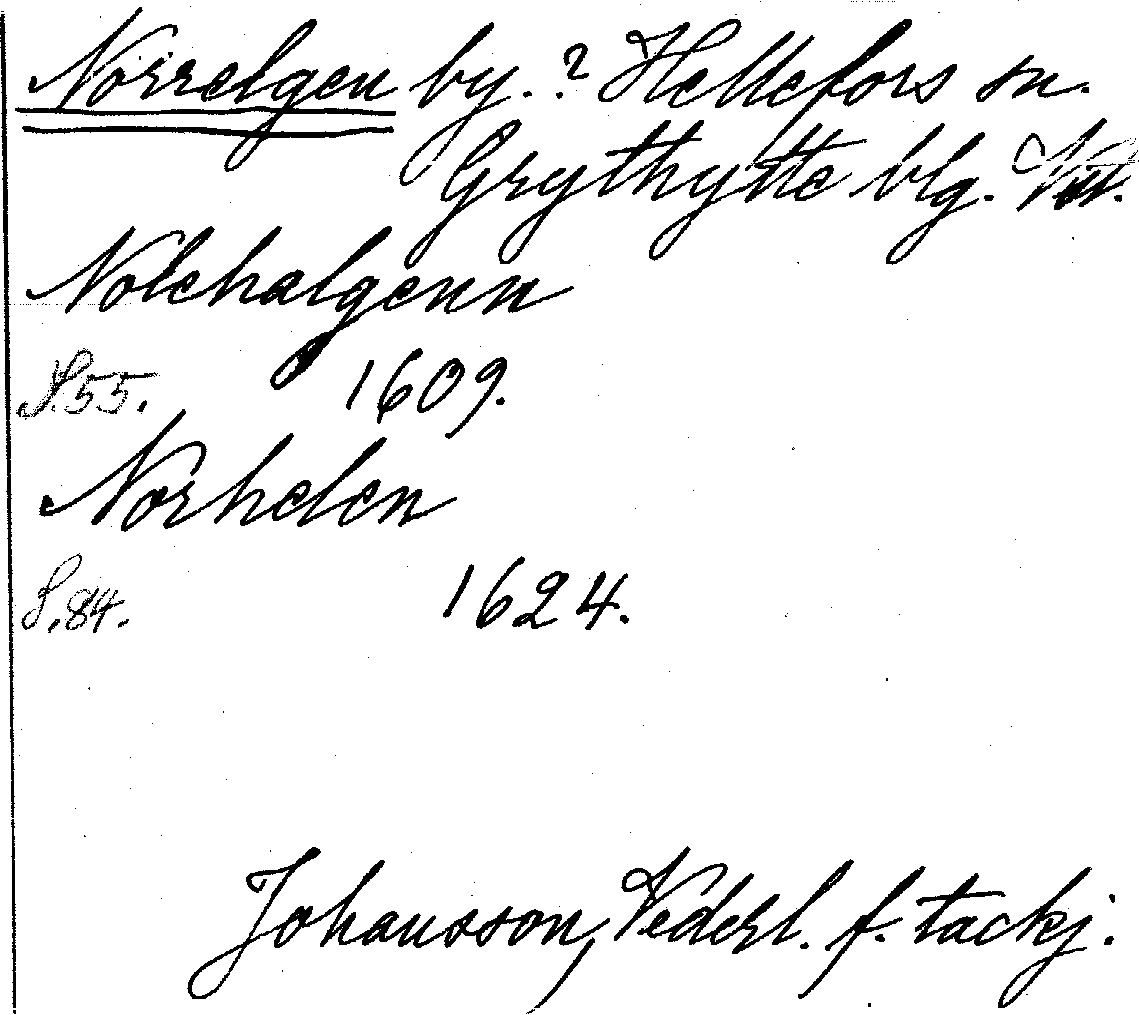 Norrelgen by. ? Hellefors sn.
Grythytte blg.
Nolehalgenn
S.55. 1609.
Norhelen
S.84. 1624.
Johansson, Vederl. f. tackj.